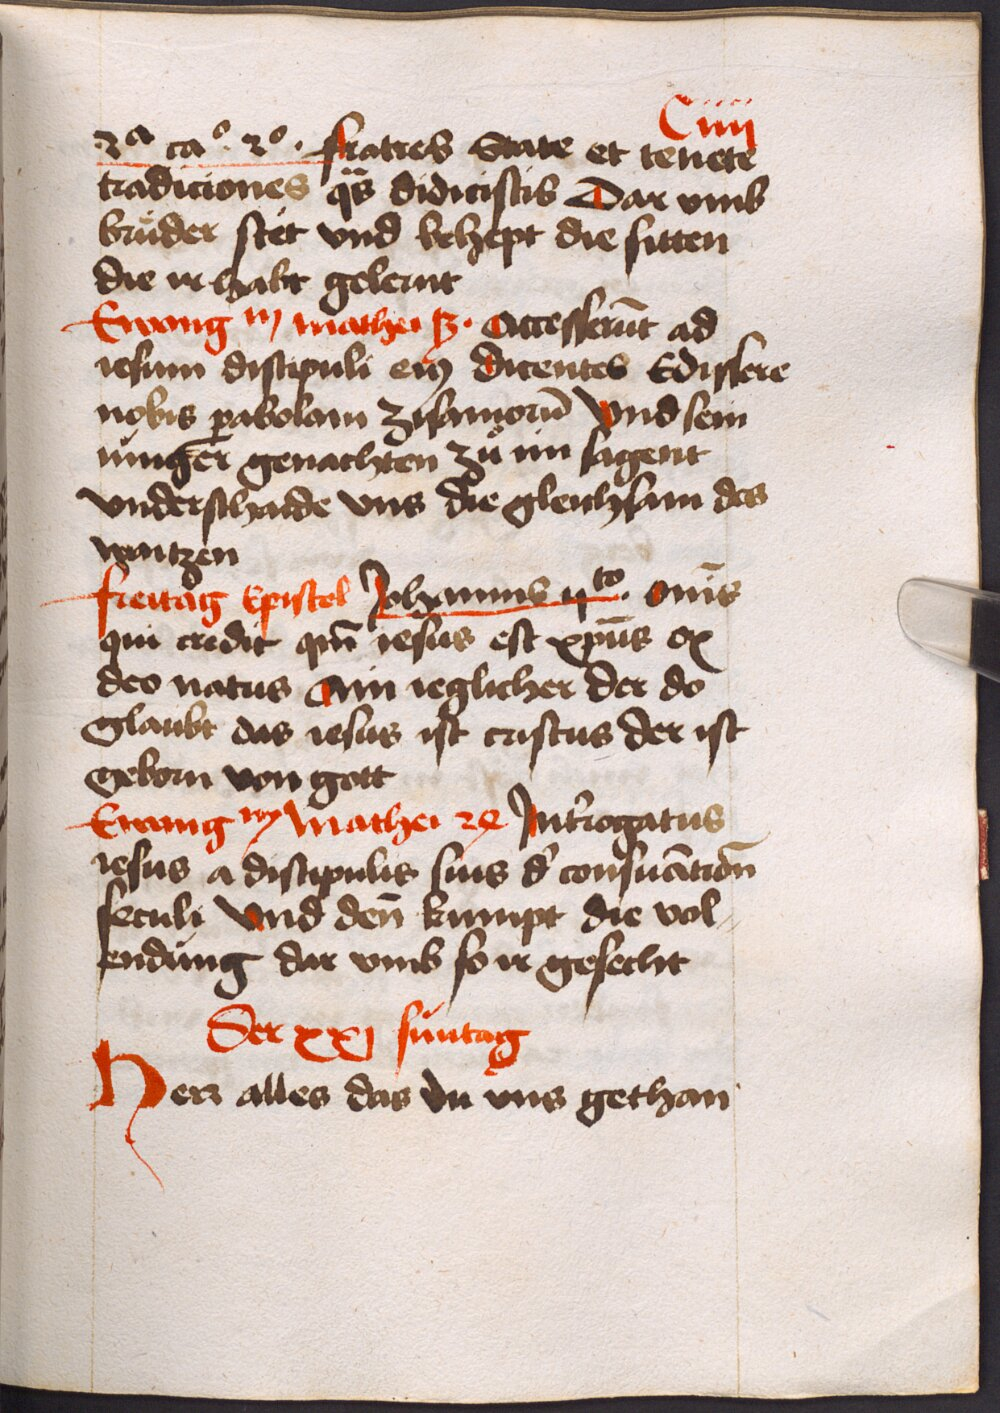 Ciiij
2ᵃ ca° 2° · fratres State et tenete
tradiciones q̄s didicistis Dar vmb
brüder stet vnd behept die sitten
die ir habt gelernt
Ewang iij mathei 13 · Accesserūt ad
iesum discipuli eiꝯ dicentes Edissere
nobis ꝑabolam Zisaniorū Vnd sein
iünger genachten zů im sagent
vnderschaide vns die gleichsam des
waitzen
freitag Epistel Johannis vto · Omīs
qui credit qm̄ iesus est xp̄us ex
deo natus Ain ieglicher der do
Glaubt das iesus ist cristus der ist
Geborn von gott
Ewang iij Mathei 24 Int'rogatus
iesus a discipulis suis d' consum̄ation̄
seculi Vnd den̄ kumpt die vol
endung dar vmb so ir gesecht
Der xxj suntag
Herr alles das du vns gethan